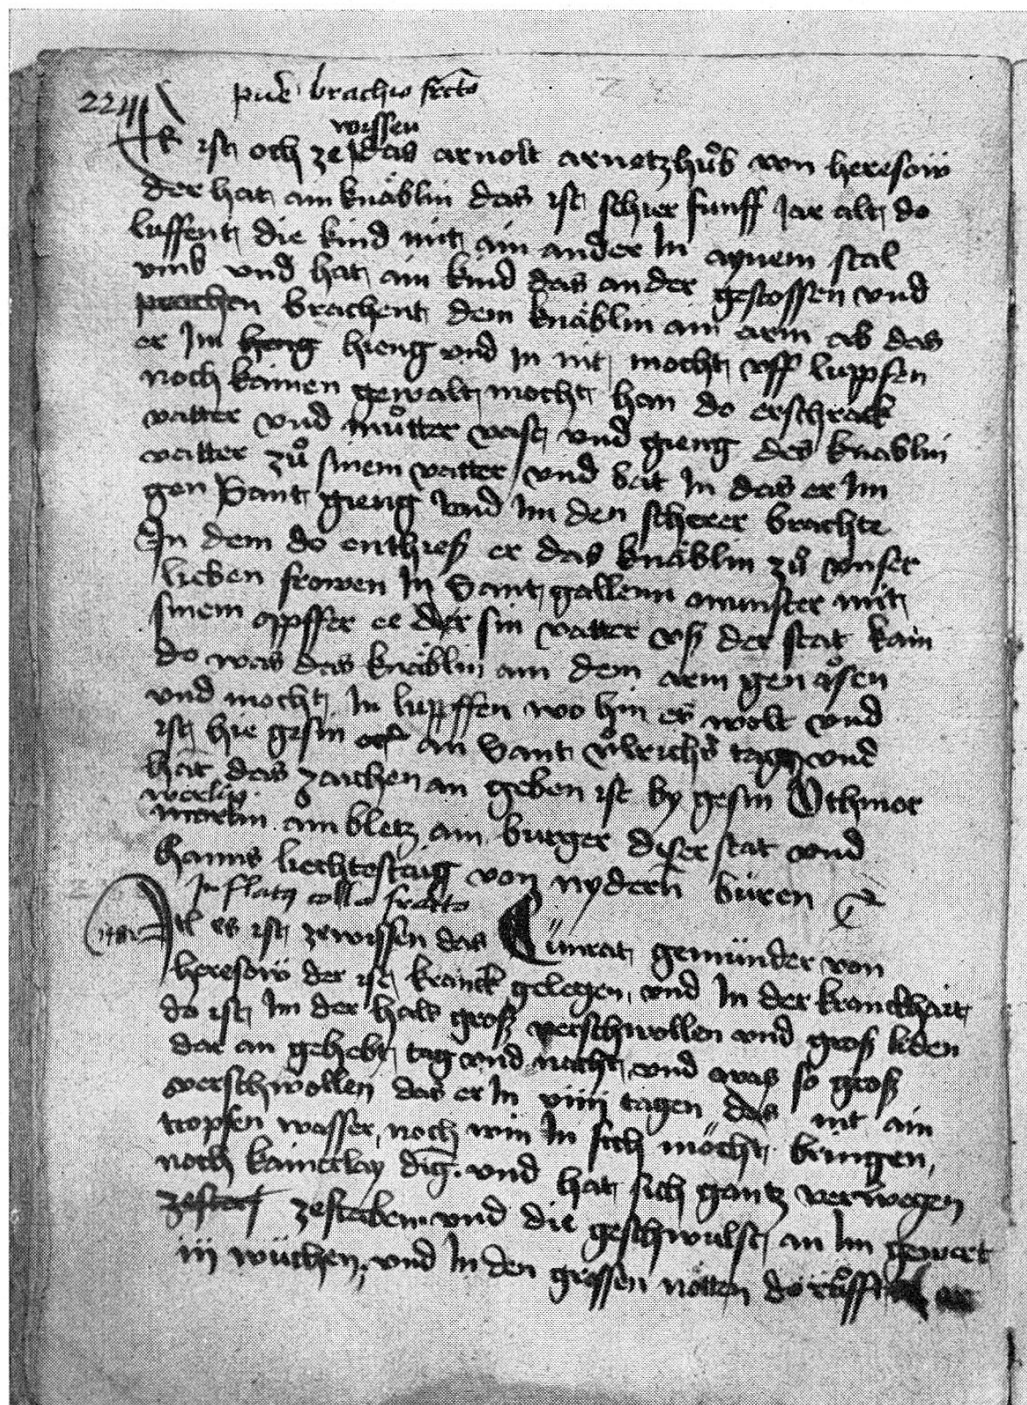 224
puer brachio fracto
wissen
Es ist och ze das arnolt arnetzhůb von heresöw
der hat ain knäblin das ist schier funff Jar alt do
luffent die kind mit ain ander In aynem stal
vmb vnd hat ain kind das ander gestossen vnd
prachen brachent dem knäblin ain arm ab das
er Im heng hieng vnd In nit mocht vff luppfen
noch kainen gewalt mocht han do erschrack
vatter vnd můtter vast vnd gieng des knäblin
vatter zů sinem vatter vnd bat In das er Im
gen Sant gieng vnd Im den scherer brachte
In dem do enthies er das knäblin zů vnser
lieben frowen In Sant gallenn munster mit
sinem opffer ee der sin vatter vß der stat kam
do was das knäblin an dem arm genäsen
vnd mocht In lupffen wo hin er wolt vnd
ist hie gesin an Sant vͦlrichs tag vnd
hat das zaichen an geben ist by gesin Othmor
am bletz ain burger diser stat vnd
Hanns liechtestaig von nydern büren
Inflatus collo fracto
Itl es ist zewissen das Cünrat gemünder von
heresöw der ist kranck gelegen vnd In der kranckhait
do ist Im der hals groß verschwollen vnd groß liden
dar an gehebt tag vnd nacht vnd was so groß
verschwollen das er In viiij tagen das nit ain
tropfen wasser noch win In sich möcht bringen,
noch kainerlay ding. vnd hat sich gantz verwegen
zesterbenn vnd die geschwulst an Im gewert
iij wüchen, vnd In den grossen nötten do růfft er